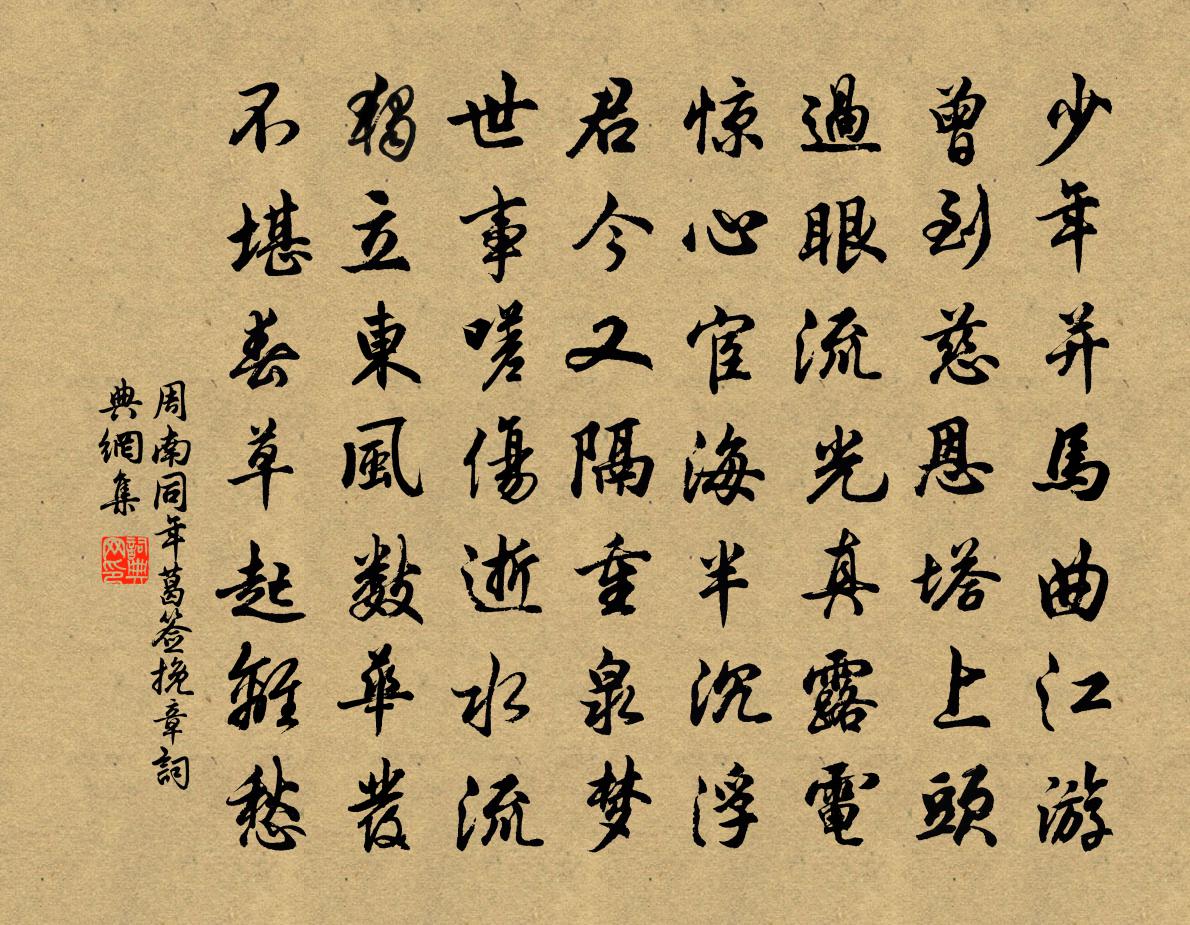 少年并馬曲江游
曾到慈恩塔上頭
過眼流光真露電
惊心宦海半沉浮
君今又隔重泉梦
世事嗟傷逝水流
獨立東風數華發
不堪春草起離愁
周南同年葛签挽章詞
典網集
詞典网印